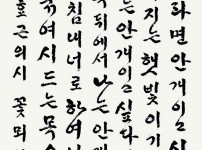 라면안개이고
지는햇빛이기
는안개이고싶다
뒤에서나는안개
침내너로하여
꺾여시드는목
근의시 꽃뫼